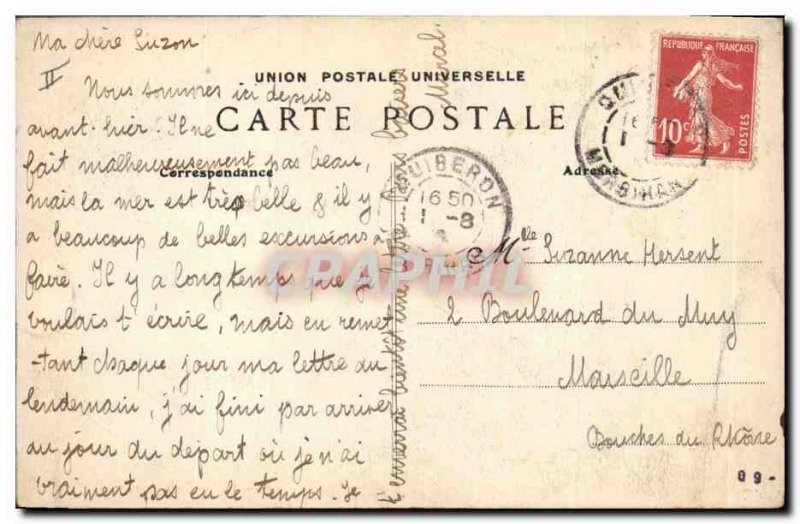 Ma chère Suzon
II
Nous sommes ici depuis
avant-hier. Il ne
fait malheureusement pas beau,
mais la mer est très belle & il y
a beaucoup de belles excursions à
faire. Il y a longtemps que je
voulais t'écrire, mais en remet
-tant chaque jour ma lettre au
lendemain, j'ai fini par arriver
au jour du départ où je n'ai
vraiment pas eu le temps. Je
t'enverrai bientôt une lettre. bons baisers
UNION POSTALE UNIVERSELLE
CARTE POSTALE
Correspondance
Adresse
QUIBERON
16 50
1 -8
REPUBLIQUE FRANÇAISE
10c
POSTES
MORBIHAN
CPAPHIL
Mlle Suzanne Hersent
2 Boulevard du Muy
Marseille
Bouches du Rhône
99-